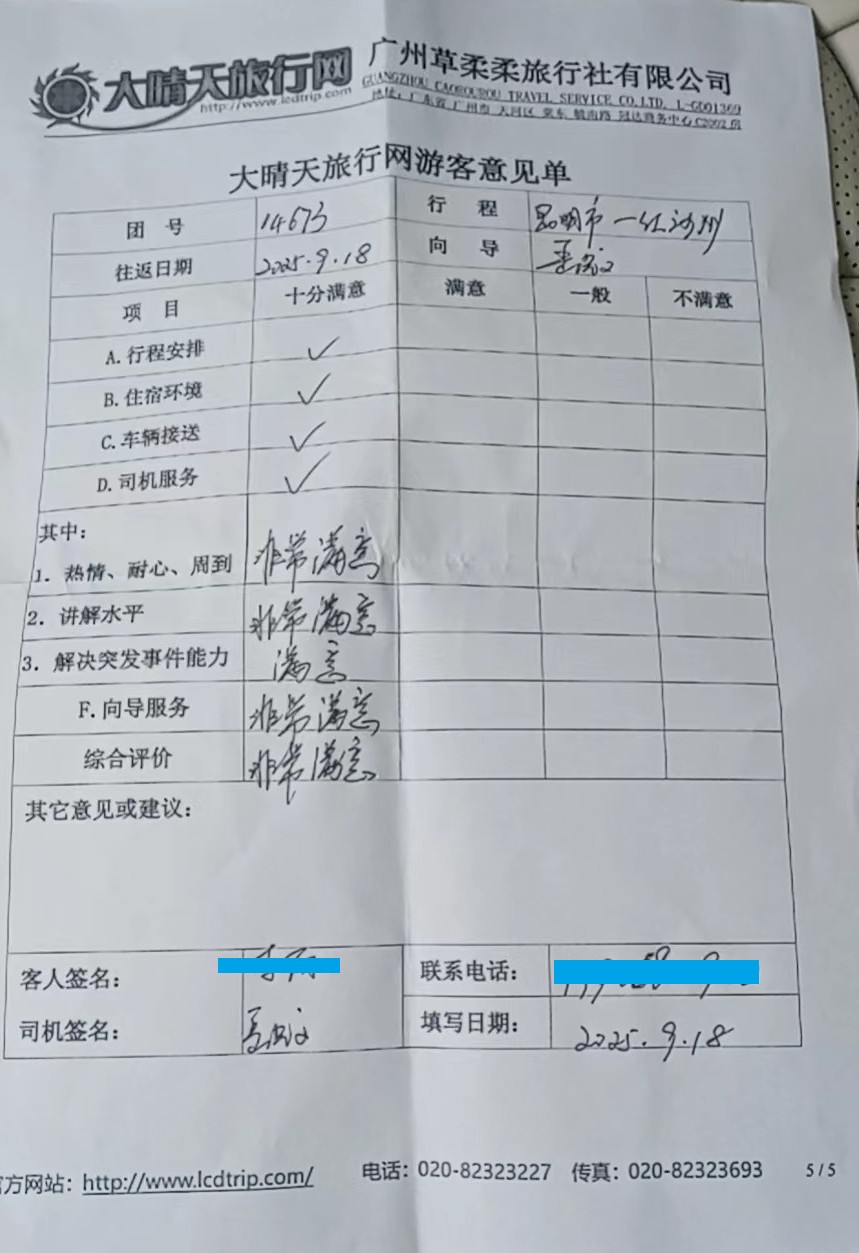 大晴天旅行网
http://www.lcdtrip.com
广州草柔柔旅行社有限公司
GUANGZHOU CAOROUROU TRAVEL SERVICE CO.,LTD. L-GD01369
地址：广东省 广州市 天河区 棠东 毓南路 冠达商务中心C2002房
大晴天旅行网游客意见单
团 号 14673 行 程 昆明市一红河州
往返日期 2025.9.18 向 导
项 目 十分满意 满意 一般 不满意
A.行程安排 ✓
B.住宿环境 ✓
C.车辆接送 ✓
D.司机服务 ✓
其中：
1. 热情、耐心、周到 非常满意
2. 讲解水平 非常满意
3. 解决突发事件能力 满意
F.向导服务 非常满意
综合评价 非常满意
其它意见或建议：
客人签名： 联系电话：
司机签名： 填写日期： 2025.9.18
官方网站：http://www.lcdtrip.com/ 电话：020-82323227 传真：020-82323693 5/5